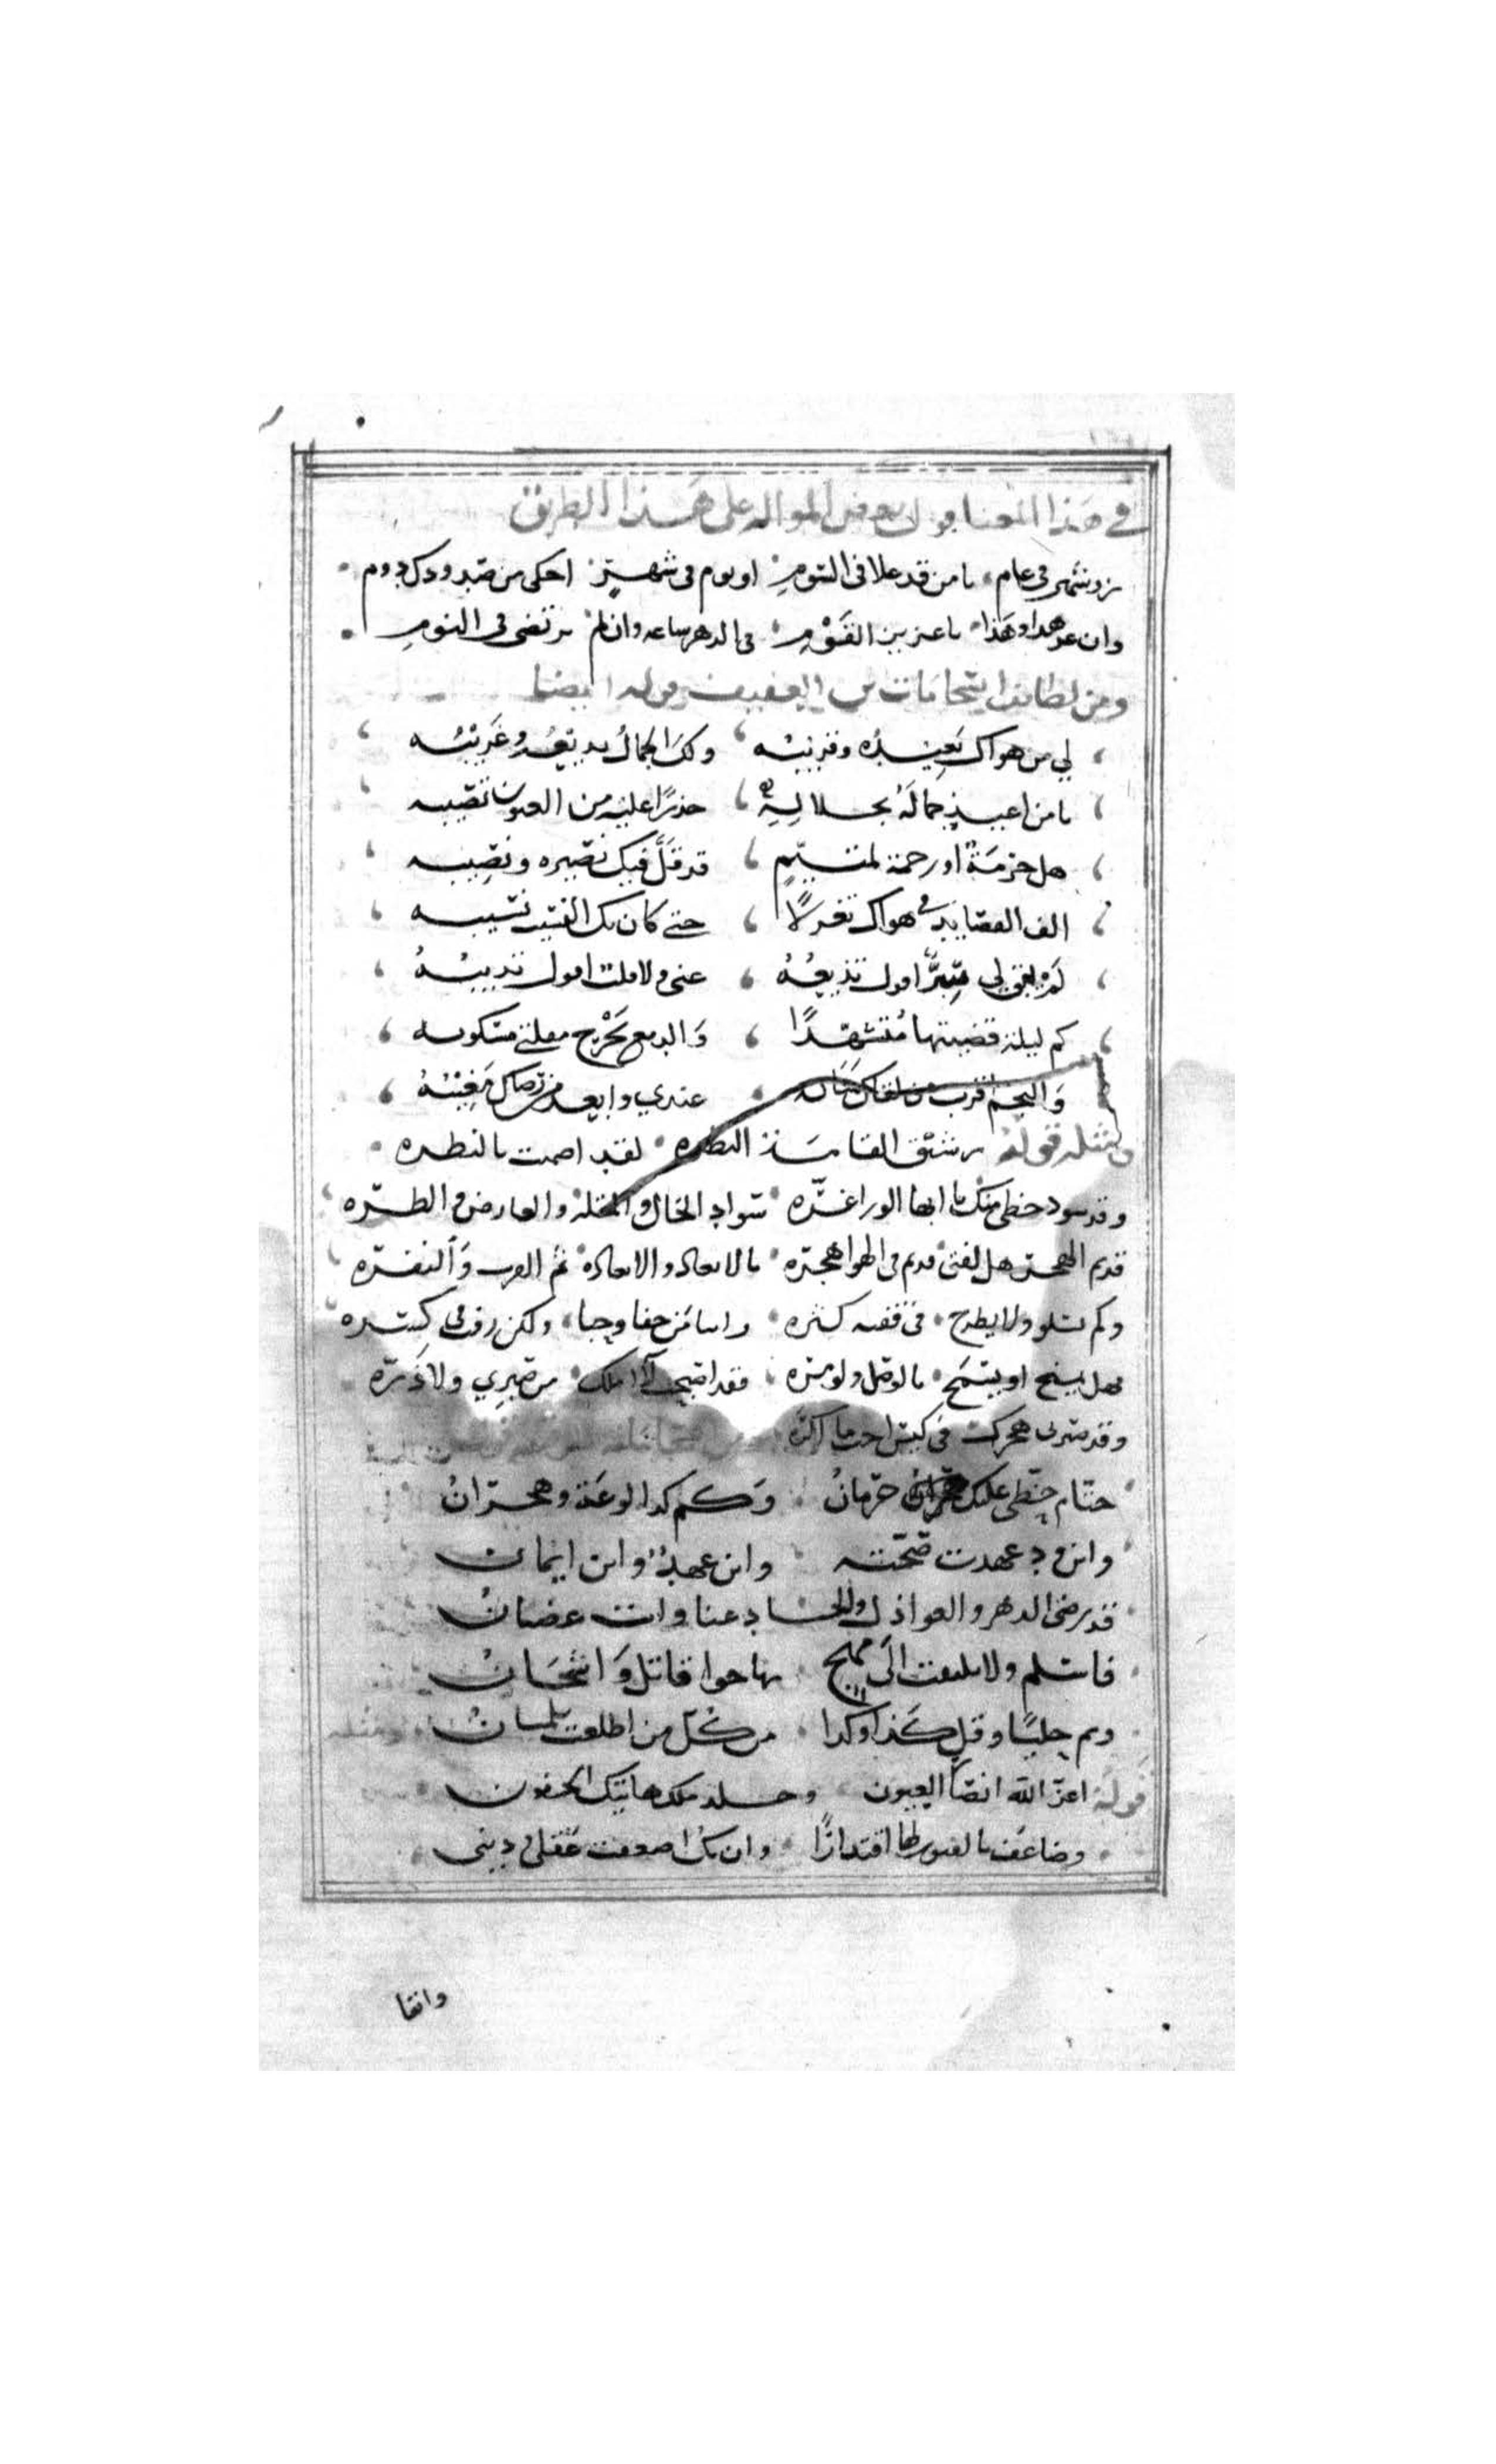 في هذا المعنا قول بعض المواله على هذا الطريق
زر شهر في عام يا من قد علا في السوم او يوم في شهر احكى من صدودك دوم
وان عز هذا وهذا يا عزيز القوم في الدهر ساعه وان لم ترتضي في النوم
ومن لطائف انسجامات ابن العفيف قوله ايضا
لي من هواك بَعيدُه وقريبُه ولك الجمالُ بديعُه وغريبُه
يا من اعيذ جمالَهُ بجلاله حذرًا عليه من العيون تصيبه
هل حرمةٌ او رحمة لمتيّمٍ قد قلّ فيك نصيره ونصيبه
الف القصايد في هواك تغزلًا حتى كان بك النسيب نسيبه
لم يبق لي سرًّا اقول تذيعُهُ عني ولا قلت اقول تذيبُهُ
كم ليلة قضيتها مُتشهّدًا وَالدمع يَجْرح مقلتي مسكوبه
وَالنجم اقرب من لقاك مناله عندي وابعد من رضاك مَغيبُهُ
ومثله قوله رشيق القامة النظره لقد اصمت بالنظره
وقد سود حظي منك يا ابها الورا غرّه سواد الخال والمقلة والعارض والطرّه
قديم الهجر هل لفتى قديم في الهوا هجره بالابعاد والابعاده ثم القرب وَالنفرّه
وكم تسلو ولا يطرح في قفيه كثره وانسا من جفا وجبا ولكن رق في كسره
فهل يسنح او يسمح بالوصل ولو مره فقد اصبحت لا املك من صبري ولا ذَرّه
وقد صيرني هجرك في كيس
حتّام حظّي عليك حرمانُ وَكم كذا لوعة وهجرانُ
واين ود عهدت صحّته واين عهدٌ واين ايمان
قد رضي الدهر والعواذل والحساد عنا وانت غضبانُ
فاسلم ولا تلتفت الى مهج بها جوا قاتل وَاشجانُ
ونم خليًا وقل كذا وكذا من كل من اطلعت تلمسانُ ومثله
قوله اعزّ الله انصار العيون وخلد ملك هاتيك الجفون
وضاعف بالفتور لها اقتدارًا وان تك اضعفت عقلي وديني
وابقا